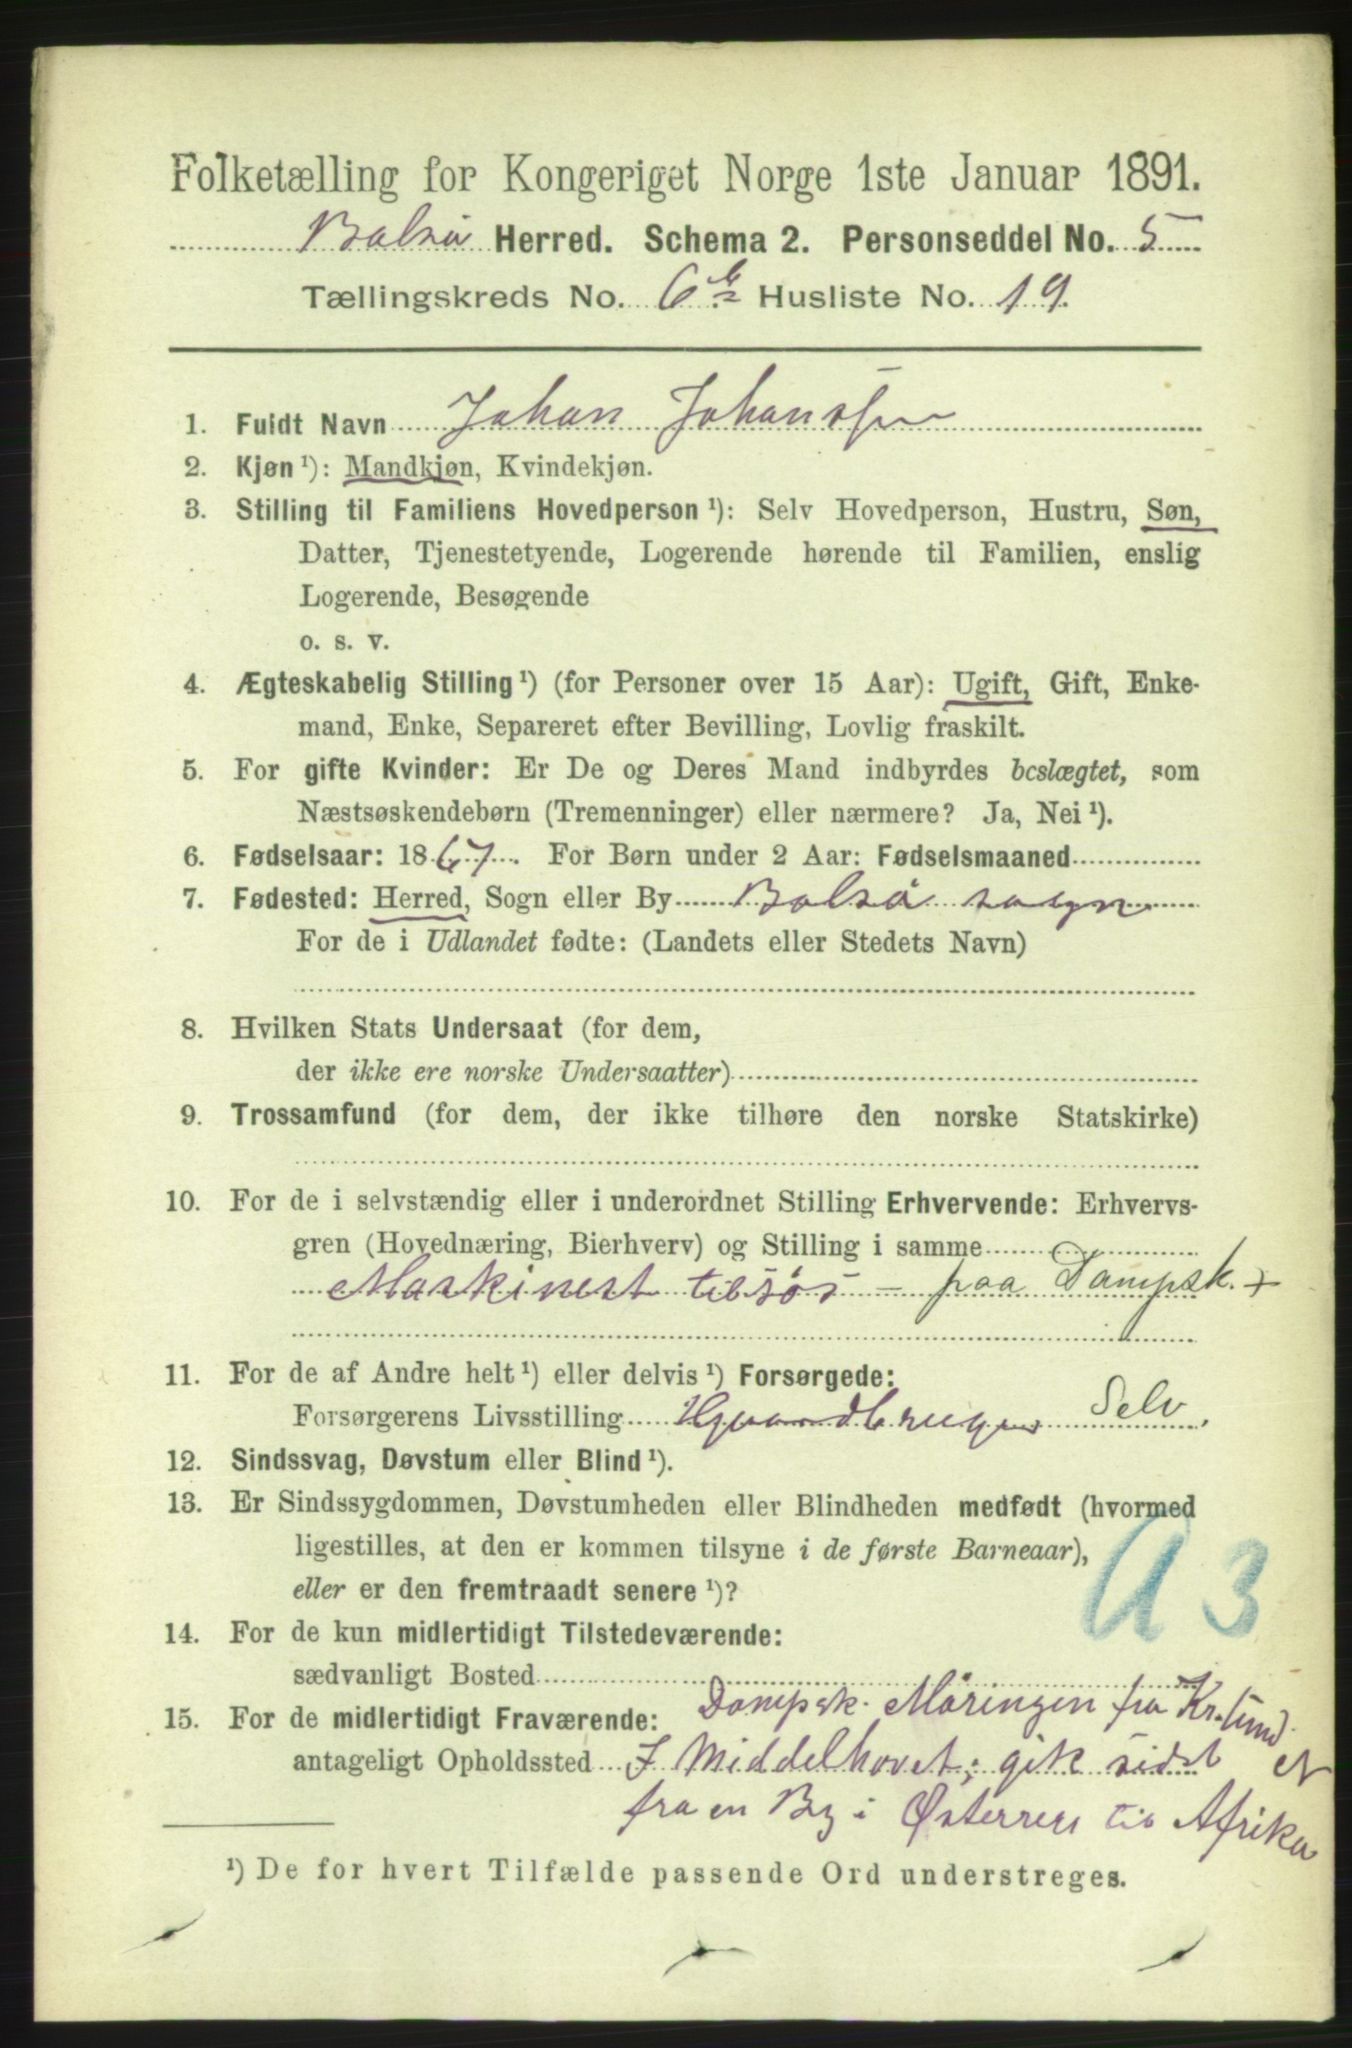 Folketælling for Kongeriget Norge 1ste Januar 1891.
Bolsø Herred. Schema 2. Personseddel No. 5
Tællingskreds No. 6 Husliste No. 19.
1. Fuldt Navn Johan Johanssen
2. Kjøn ¹): Mandkjøn, Kvindekjøn.
3. Stilling til Familiens Hovedperson ¹): Selv Hovedperson, Hustru, Søn,
Datter, Tjenestetyende, Logerende hørende til Familien, enslig
Logerende, Besøgende
o. s. v.
4. Ægteskabelig Stilling ¹) (for Personer over 15 Aar): Ugift, Gift, Enke-
mand, Enke, Separeret efter Bevilling, Lovlig fraskilt.
5. For gifte Kvinder: Er De og Deres Mand indbyrdes beslægtet, som
Næstsøskendebørn (Tremenninger) eller nærmere? Ja, Nei ¹).
6. Fødselsaar: 1867. For Børn under 2 Aar: Fødselsmaaned
7. Fødested: Herred, Sogn eller By Bolsø sogn
For de i Udlandet fødte: (Landets eller Stedets Navn)
8. Hvilken Stats Undersaat (for dem,
der ikke ere norske Undersaatter)
9. Trossamfund (for dem, der ikke tilhøre den norske Statskirke)
10. For de i selvstændig eller i underordnet Stilling Erhvervende: Erhvervs-
gren (Hovednæring, Bierhverv) og Stilling i samme
Maskinest tilsøs – paa Dampsk. +
11. For de af Andre helt ¹) eller delvis ¹) Forsørgede:
Forsørgerens Livsstilling Gaardbruger Selv.
12. Sindssvag, Døvstum eller Blind ¹).
13. Er Sindssygdommen, Døvstumheden eller Blindheden medfødt (hvormed
ligestilles, at den er kommen tilsyne i de første Barneaar),
eller er den fremtraadt senere ¹)?
A 3
14. For de kun midlertidigt Tilstedeværende:
sædvanligt Bosted
15. For de midlertidigt Fraværende: Dampsk. Møringen fra Kr.sund.
antageligt Opholdssted I Middelhavet; gik sidst
fra en By i Østerreig til Afrika
¹) De for hvert Tilfælde passende Ord understreges.